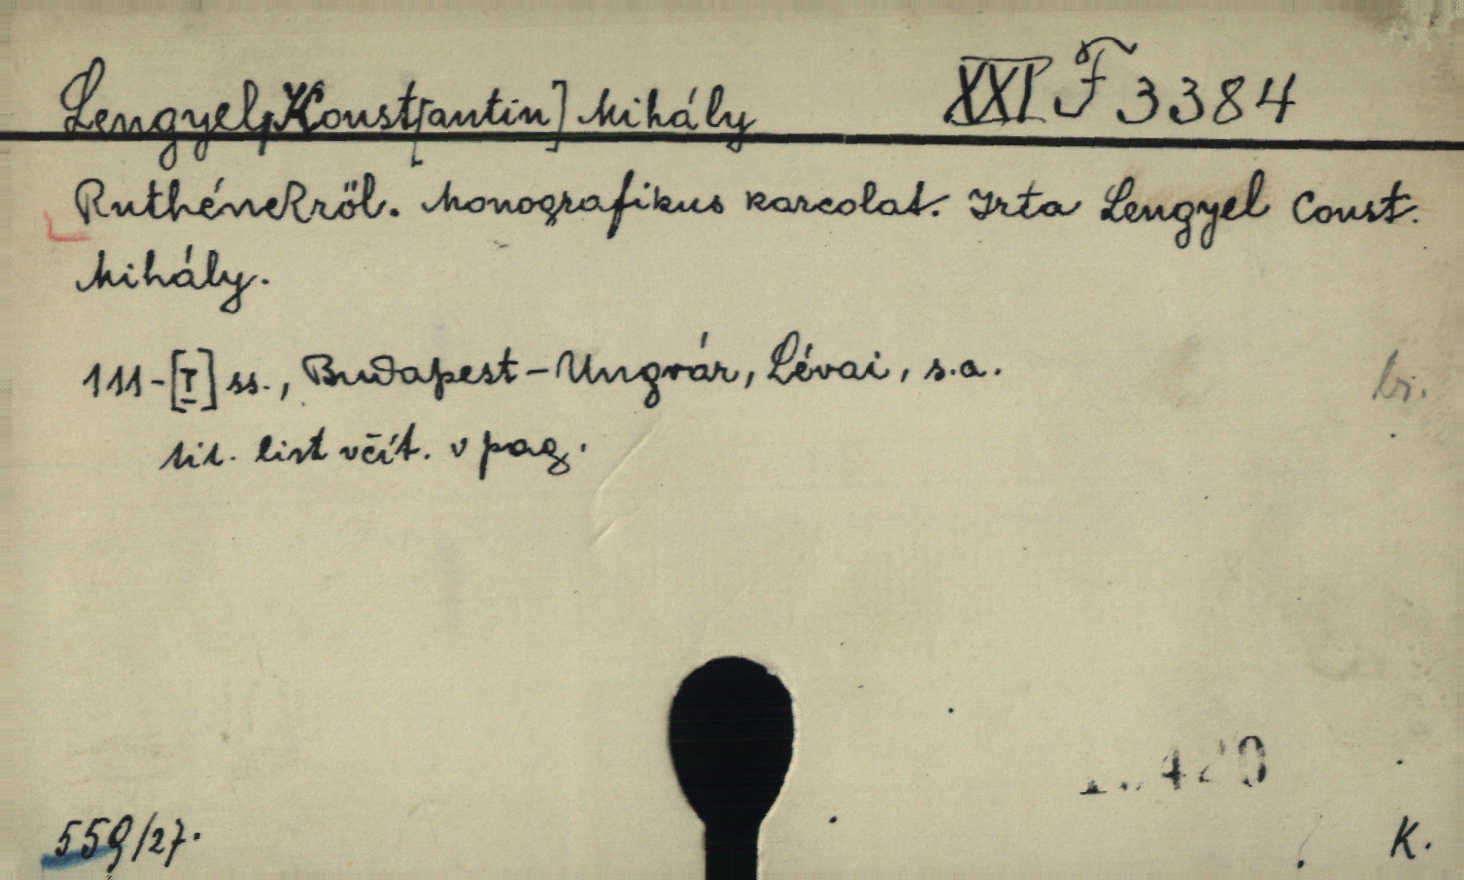 Lengyel, Konst[antin] Mihály XXI F 3384
Ruthénekről. Monografikus karcolat. Irta Lengyel Const.
Mihály.
111-[I] ss., Budapest-Ungvár, Lévai, s.a.
tit. list včít. v pag.
br.
559/27.
K.